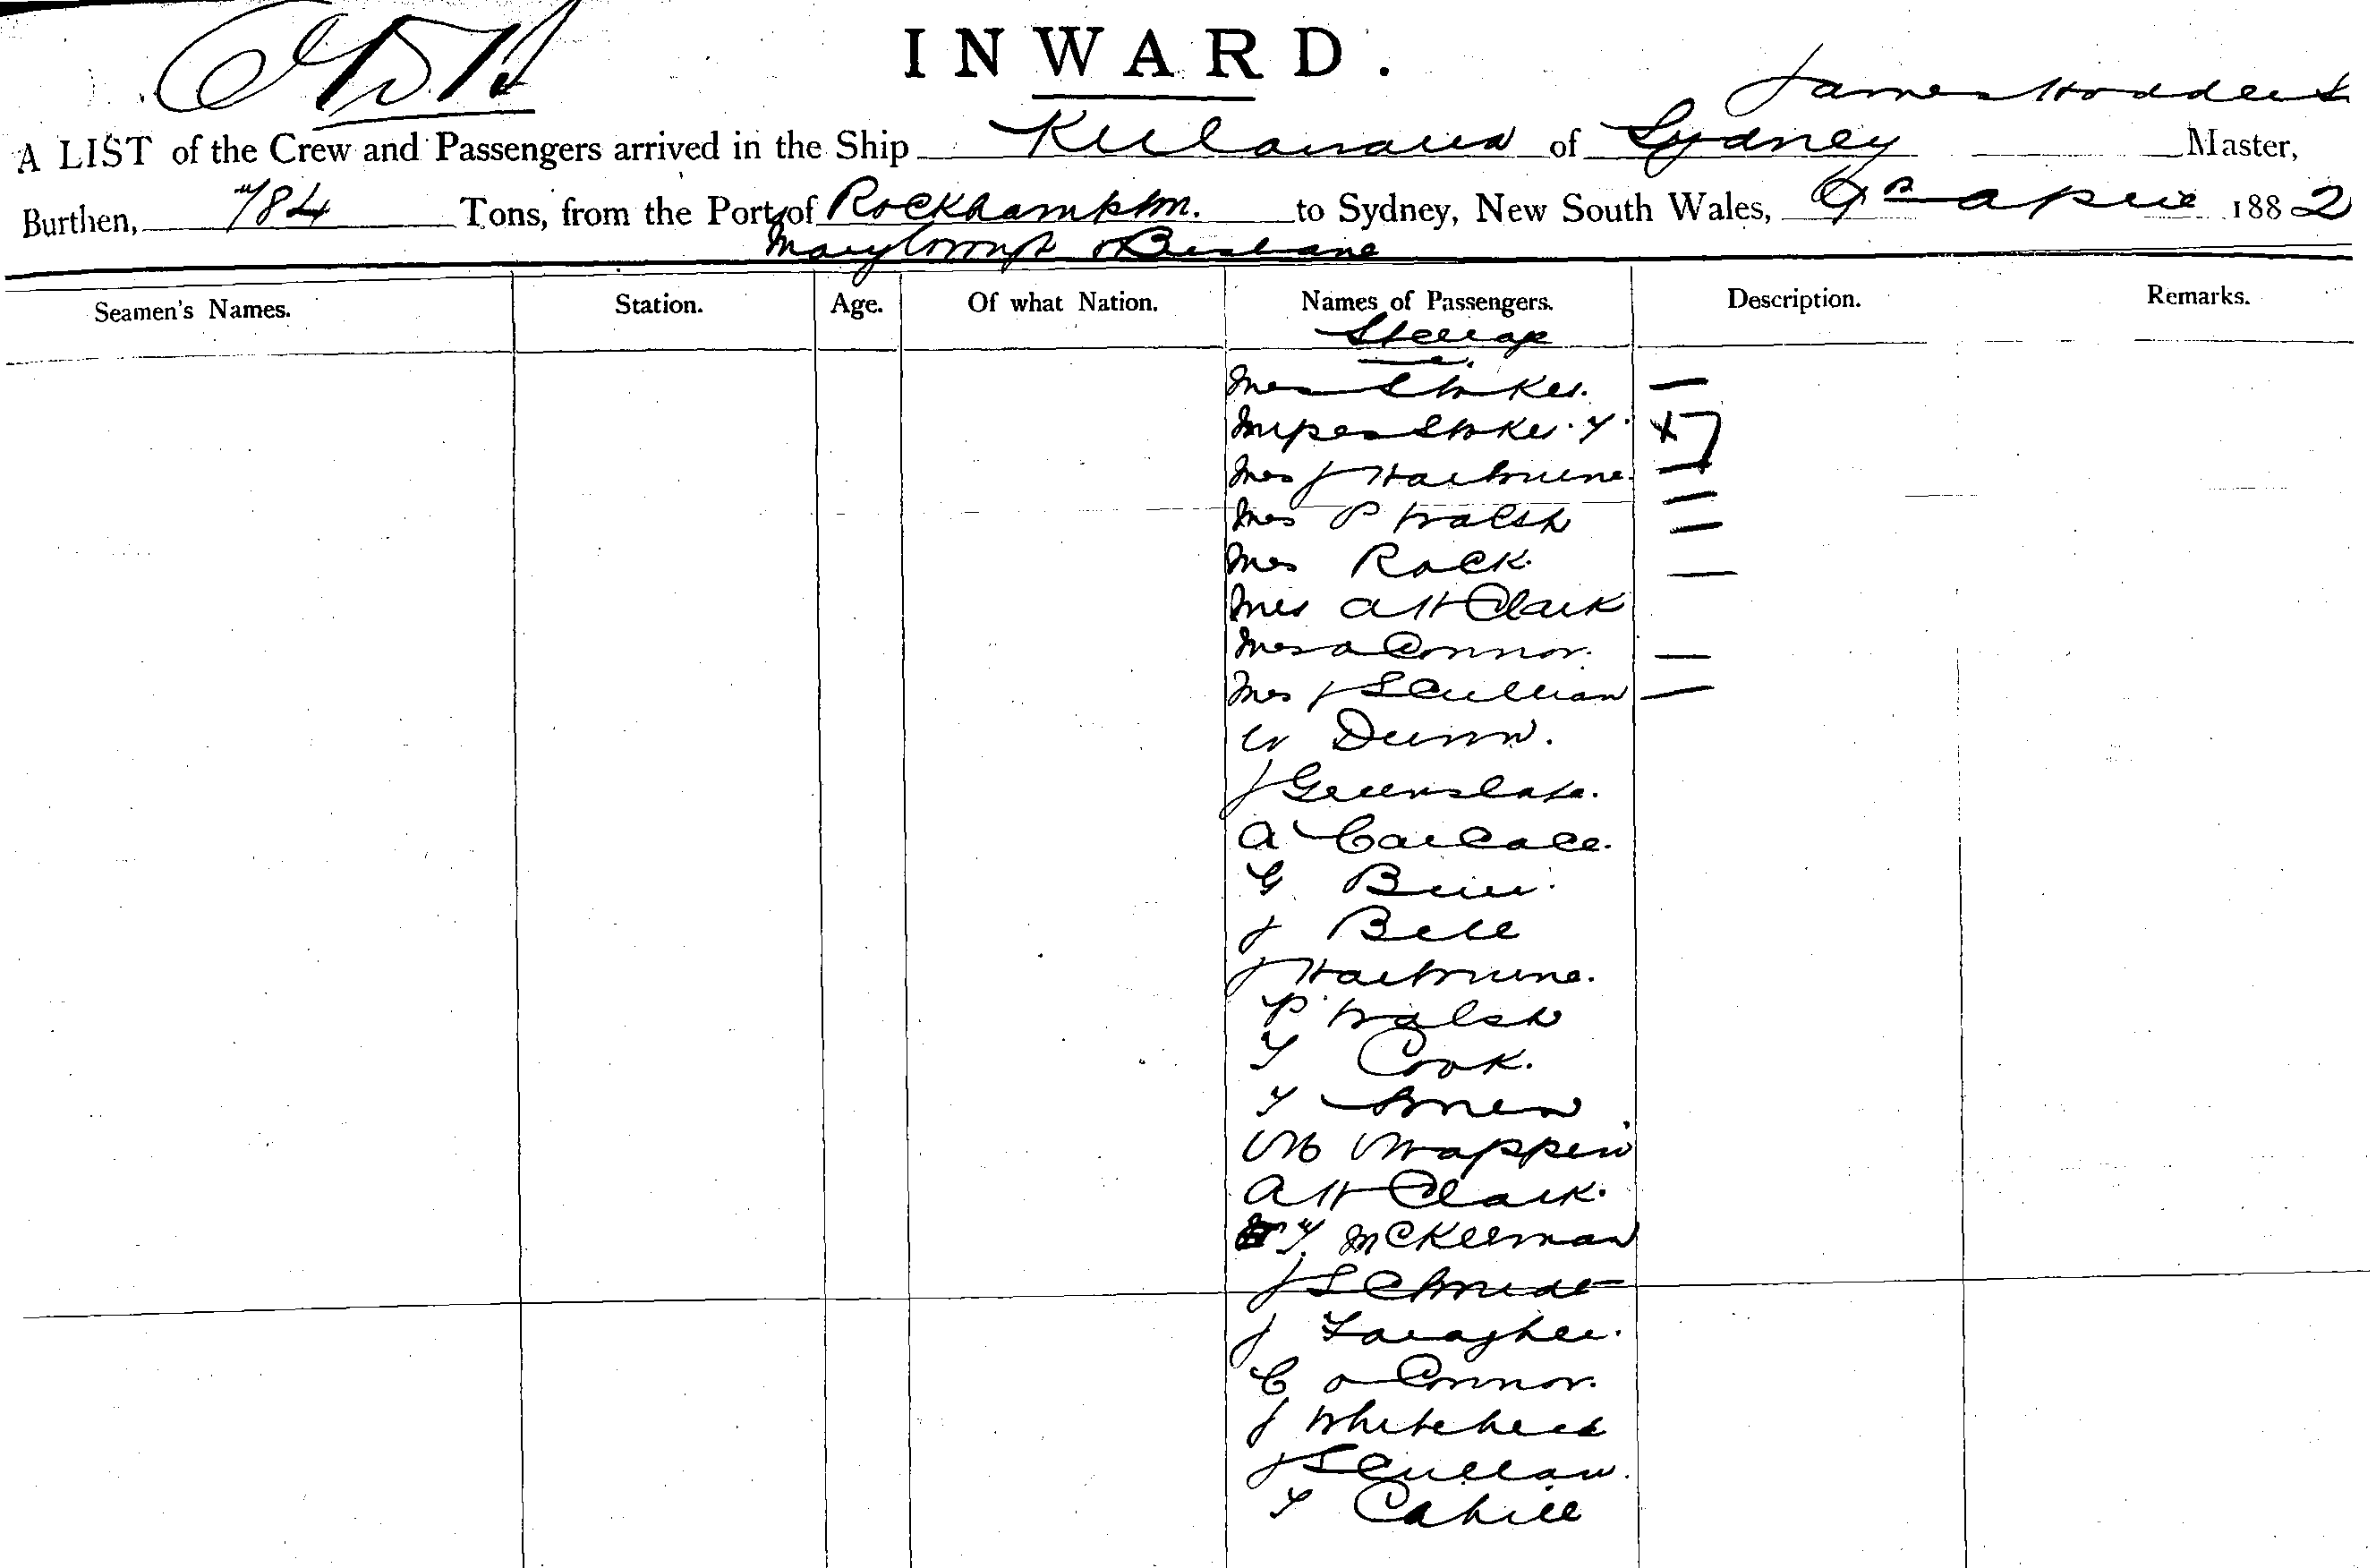 INWARD.
James
A LIST of the Crew and Passengers arrived in the Ship Killarney of Sydney Master,
Burthen, 784 Tons, from the Port of Rockhampton. to Sydney, New South Wales, 9th April 1882
Maryborough & Brisbane
Seamen's Names. Station. Age. Of what Nation. Names of Passengers. Description. Remarks.
Steerage
Mrs Stokes.
Stokes.
Mrs J Hawthorne.
Mrs P Walsh
Mrs Rock.
Mrs A H Clark
Mrs O Connor.
Mrs J Scullian
W Dunn.
J Greenslate.
A
G
J Bell
J Hawthorne.
P Walsh
T Cook.
T
W Mappin
A H Clark.
T. McKeernan
J Schmidt
J Faragher.
C O Connor.
J Whitehead
J Scullan.
T Cahill